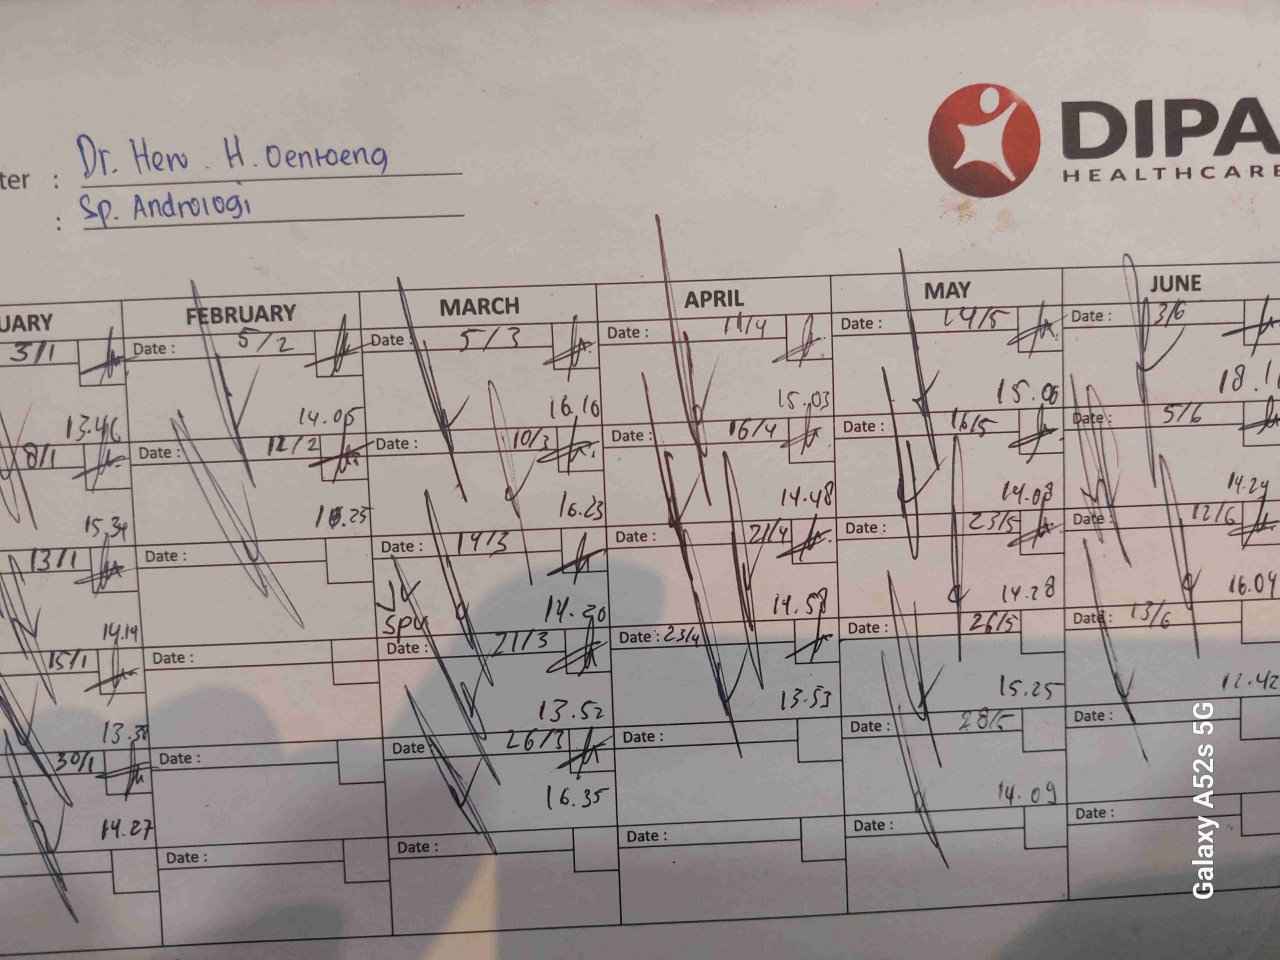 DIPA
HEALTHCARE
ter : Dr. Heru . H. Oentoeng
: Sp. Andrologi
UARY FEBRUARY MARCH APRIL MAY JUNE
3/1 Date : 5/2 Date : 5/3 Date : 11/4 Date : 14/5 Date : 3/6
13.46 14.05 16.10 15.03 15.06 18.11
8/1 Date : 12/2 Date : 10/3 Date : 16/4 Date : 16/5 Date : 5/6
15.34 16.23 14.48 14.08 14.24
13/1 Date : Date : 19/3 Date : 21/4 Date : 23/5 Date : 12/6
14.14 14.20 14.58 14.28 16.04
15/1 Date : Date : 21/3 Date : 23/4 Date : 26/5 Date : 13/6
13.38 13.52 13.53 15.25 12.42
30/1 Date : Date : 26/3 Date : Date : 28/5 Date :
14.27 16.35 14.09
Date : Date : Date : Date : Date :
Galaxy A52s 5G